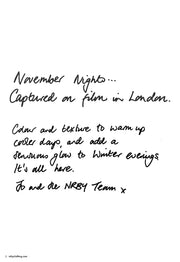 November Nights...
Captured on film in London.
Colour and texture to warm up
cooler days, and add a
sensuous glow to Winter evenings.
It's all here.
Jo and the NRBY Team x